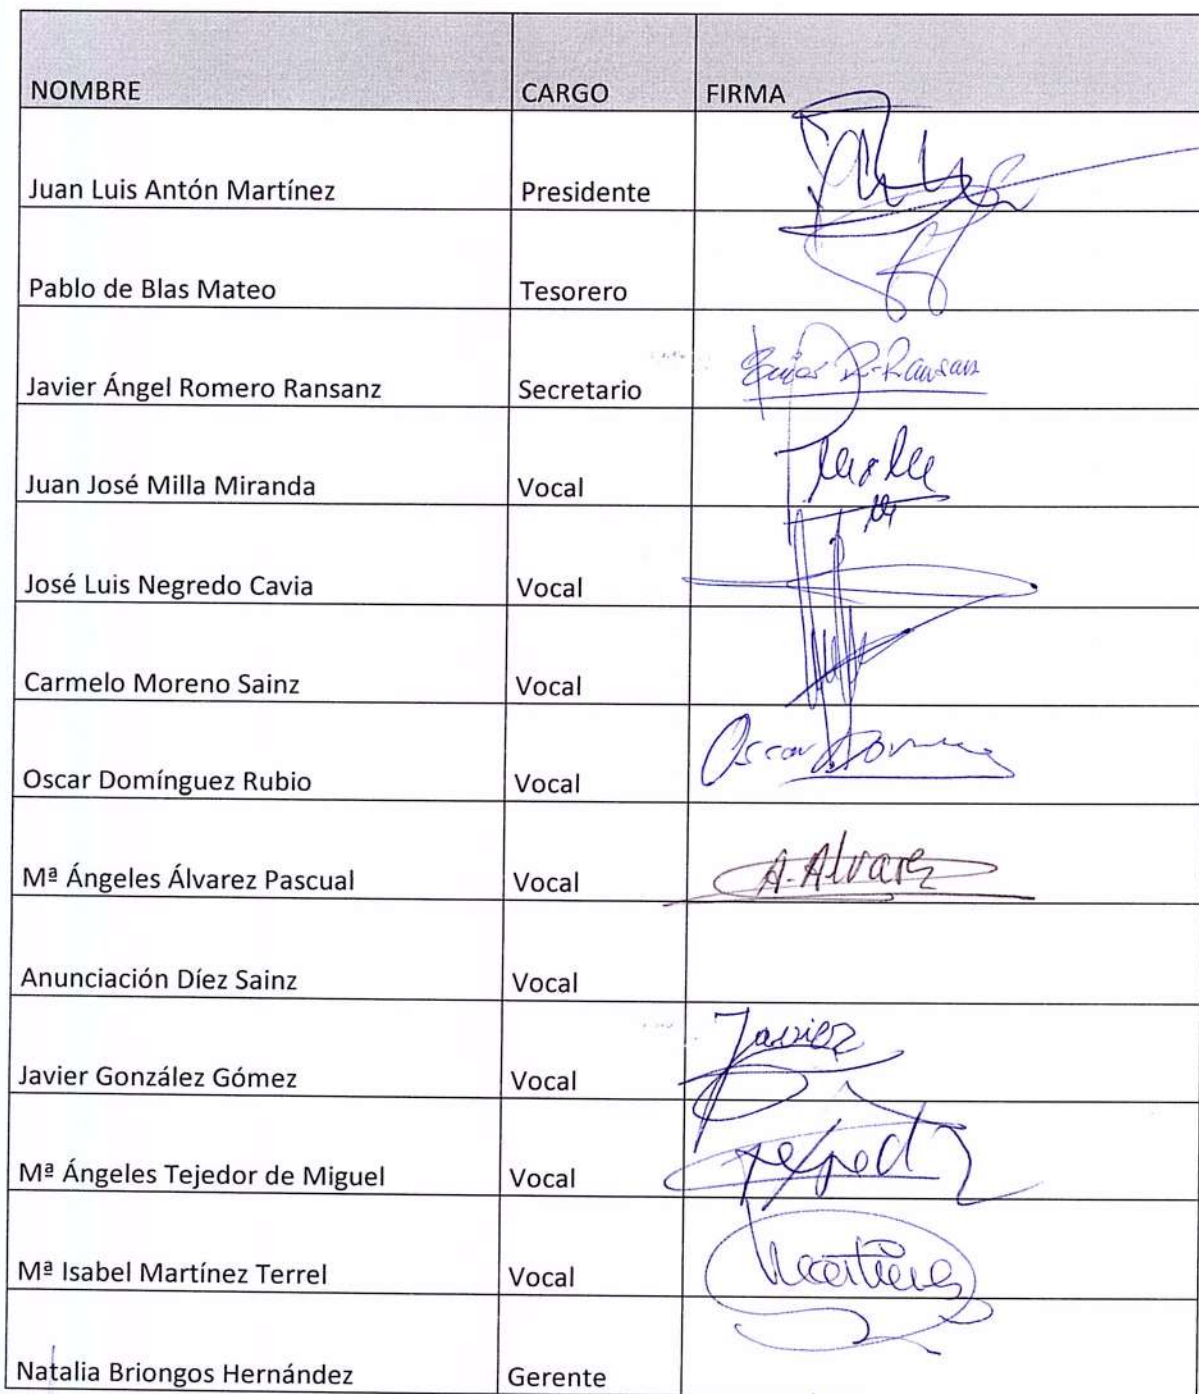 NOMBRE CARGO FIRMA
Juan Luis Antón Martínez Presidente
Pablo de Blas Mateo Tesorero
Javier Ángel Romero Ransanz Secretario R-Ransanz
Juan José Milla Miranda Vocal
José Luis Negredo Cavia Vocal
Carmelo Moreno Sainz Vocal
Oscar Domínguez Rubio Vocal Oscar
Mª Ángeles Álvarez Pascual Vocal A-Alvarez
Anunciación Díez Sainz Vocal
Javier González Gómez Vocal Javier
Mª Ángeles Tejedor de Miguel Vocal
Mª Isabel Martínez Terrel Vocal
Natalia Briongos Hernández Gerente